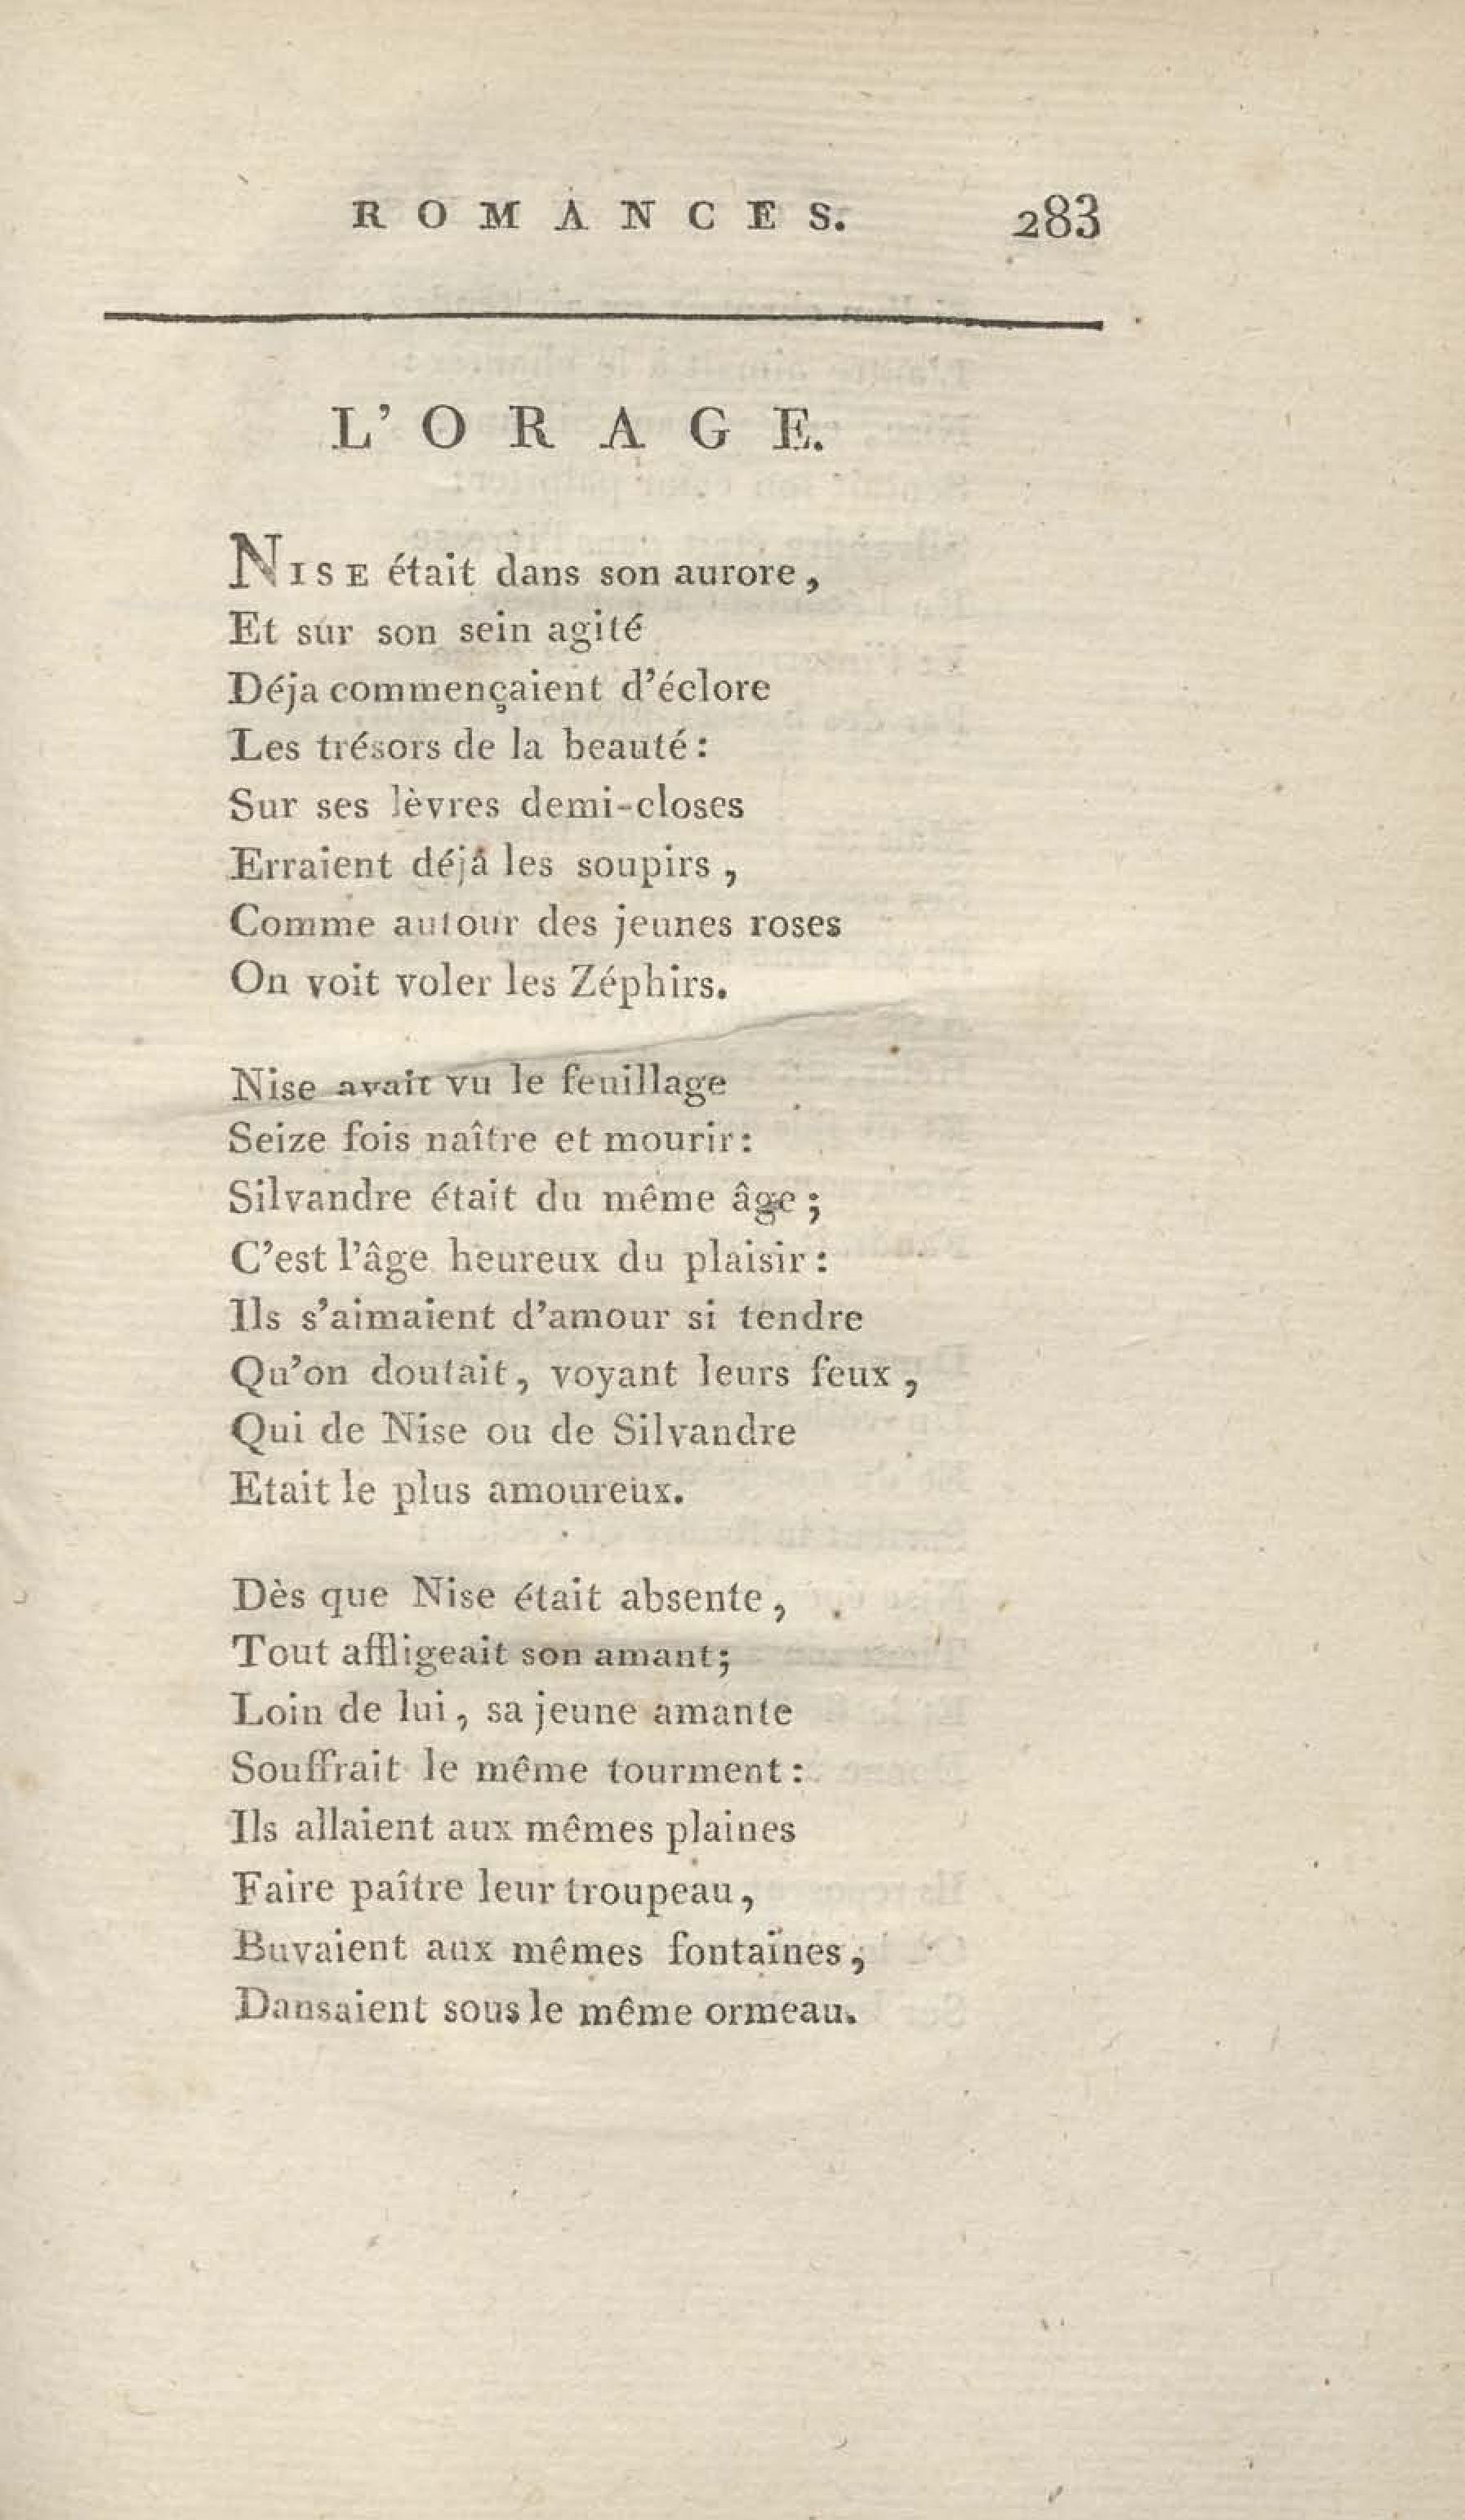 ROMANCES. 283
L'ORAGE.
NISE était dans son aurore,
Et sur son sein agité
Déja commençaient d'éclore
Les trésors de la beauté :
Sur ses lèvres demi-closes
Erraient déjà les soupirs,
Comme autour des jeunes roses
On voit voler les Zéphirs.
Nise avait vu le feuillage
Seize fois naître et mourir :
Silvandre était du même âge ;
C'est l'âge heureux du plaisir :
Ils s'aimaient d'amour si tendre
Qu'on doutait, voyant leurs feux,
Qui de Nise ou de Silvandre
Etait le plus amoureux.
Dès que Nise était absente,
Tout affligeait son amant ;
Loin de lui, sa jeune amante
Souffrait le même tourment :
Ils allaient aux mêmes plaines
Faire paître leur troupeau,
Buvaient aux mêmes fontaines,
Dansaient sous le même ormeau.